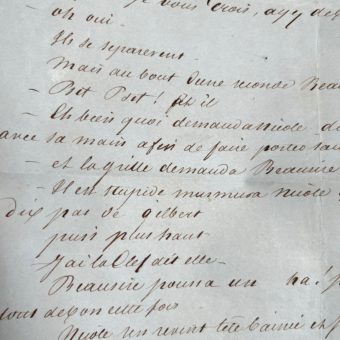 je vous crois, ay y des
– oh oui
Ils se separerent
Mais au bout dune seconde Beau
– Pst Pst! fit il
– Eh bien quoi demanda Nicole de
avec sa main afin de faire porter sa
– et la grille demanda Beausire
– Il est stupide murmura Nicole
dix pas de Gilbert
puis plus haut
– Jai la Clef dit elle –
Beausire poussa un ha! p
cette fois
Nicole revint tête baissée et